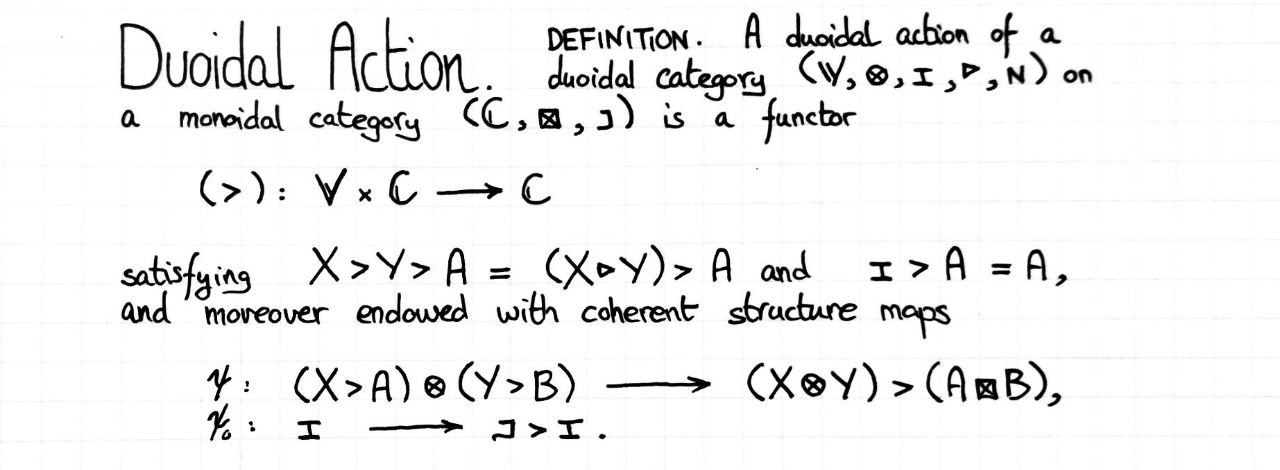 Duoidal Action. DEFINITION. A duoidal action of a
duoidal category (𝕍, ⊗, I, ▹, N) on
a monoidal category (ℂ, ⊠, J) is a functor
(>): 𝕍 × ℂ ⟶ ℂ
satisfying X > Y > A = (X ▹ Y) > A and I > A = A,
and moreover endowed with coherent structure maps
ψ: (X > A) ⊗ (Y > B) ⟶ (X ⊗ Y) > (A ⊠ B),
ψ₀: I ⟶ J > I.